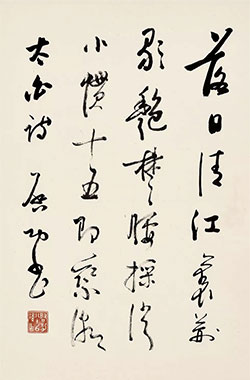 落日晴江裏荆
歌艷楚腰採從
小慣十五即乘潮
太白詩 启功书